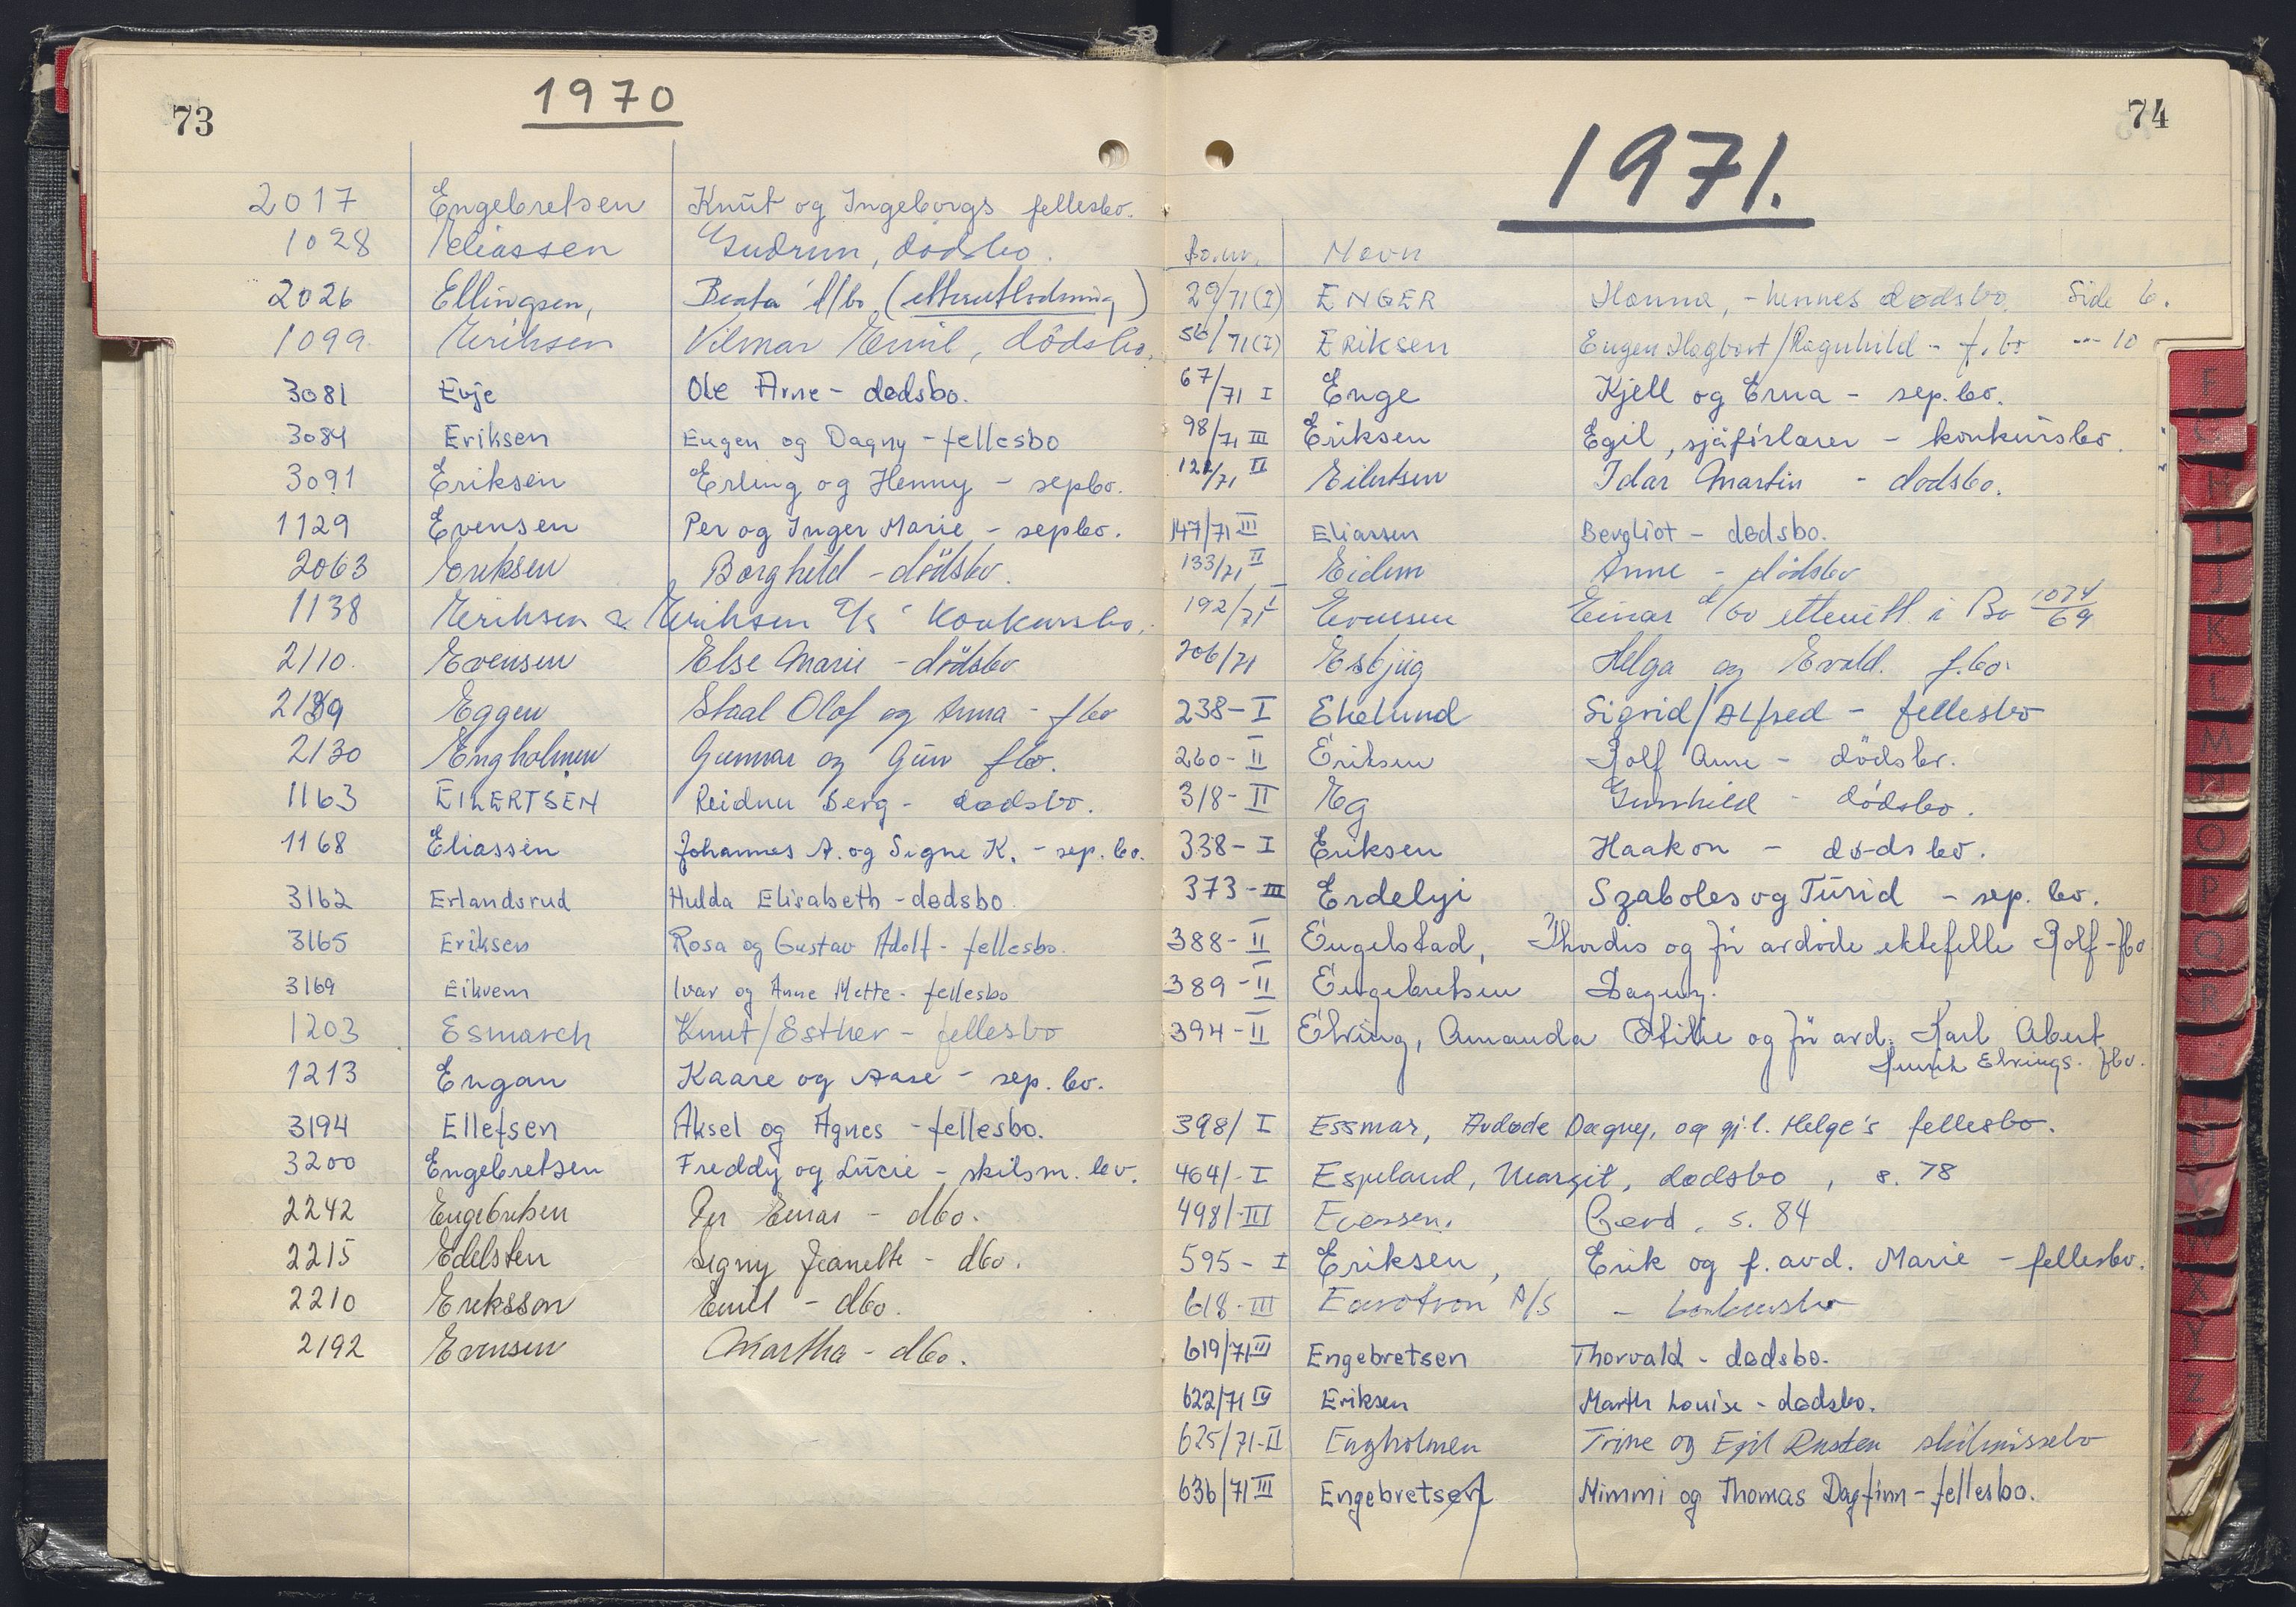 73
1970
2017 Engebretsen Knut og Ingeborgs fellesbo.
1028 Eliassen Gudrun, dødsbo.
2026 Ellingsen, Beata d/bo (etterutlodning)
1099 Eriksen Vilmar Emil, dödsbo.
3081 Evje Ole Arne - dødsbo.
3084 Eriksen Eugen og Dagny - fellesbo
3091 Eriksen Erling og Henny - sepbo.
1129 Evensen Per og Inger Marie - sepbo.
2063 Eriksen Borghild - dödsbo.
1138 Eriksen & Eriksen A/S Konkursbo.
2110. Evensen Else Marie - dödsbo
2139 Eggen Staal Olof og Anna - fbo
2130 Engholmen Gunnar og Gun fbo.
1163 EILERTSEN Reidun Berg - dødsbo.
1168 Eliassen Johannes A. og Signe K. - sep. bo.
3162 Erlandsrud Hulda Elisabeth - dødsbo
3165 Eriksen Rosa og Gustav Adolf - fellesbo.
3169 Eikrem Ivar og Anne Mette - fellesbo
1203 Esmarch Knut/Esther - fellesbo
1213 Engan Kaare og Aase - sep. bo.
3194 Ellefsen Aksel og Agnes - fellesbo.
3200 Engebretsen Freddy og Lucie - skilsm. bo.
2242 Engebretsen Per Einar - dbo.
2215 Edelsten Signy Jeanette - dbo.
2210 Eriksson Emil - dbo.
2192 Evensen Martha - dbo.
74
1971.
Bo.nr. Navn
29/71 (I) ENGER Hanna, - hennes dødsbo. Side 6.
56/71 (I) ERiksen Eugen Hagbart/Ragnhild - f.bo --- 10
67/71 I Enge Kjell og Erna - sep. bo.
98/71 III Eriksen Egil, sjåførlærer - konkursbo.
/71 II Eilertsen Idar Martin - dødsbo.
147/71 III Eliassen Bergliot - dødsbo.
133/71 II Eidem Anne - dödsbo
192/71 I Evensen Einar d/bo i Bo 1074/69
206/71 Esbjüg Helga og Evald. f.bo.
238 - I Ekelund Sigrid/Alfred - fellesbo
260 - II Eriksen Rolf Arne - dödsbo.
318 - II Eg Gunhild - dödsbo.
338 - I Eriksen Haakon - dødsbo.
373 - III Erdelyi Szabolcs og Turid - sep. bo.
388 - II Engelstad, Thordis og før avdøde ektefelle Rolf - fbo
389 - II Engebretsen Dagny.
394 - II Elving, Amanda Otilie og før avd. Karl Albert
Elvings. fbo.
398/ I Essmar, Avdøde Dagny, og gj.l. Helge's fellesbo.
464/- I Espeland, Margit, dødsbo, s. 78
498/-III Gerd, s. 84
595 - I Eriksen, Erik og f. avd. Marie - fellesbo.
618 - III A/S - konkursbo
619/71 III Engebretsen Thorvald - dødsbo.
622/71 IV Eriksen Marth Louise - dødsbo.
625/71-II Engholmen Trine og Egil Rusten skilmissebo
636/71 III Engebretsen Mimmi og Thomas Dagfinn - fellesbo.
F
G
H
I
J
K
L
M
N
O
P
Q
R
S
T
U
V
W
X
Y
Z